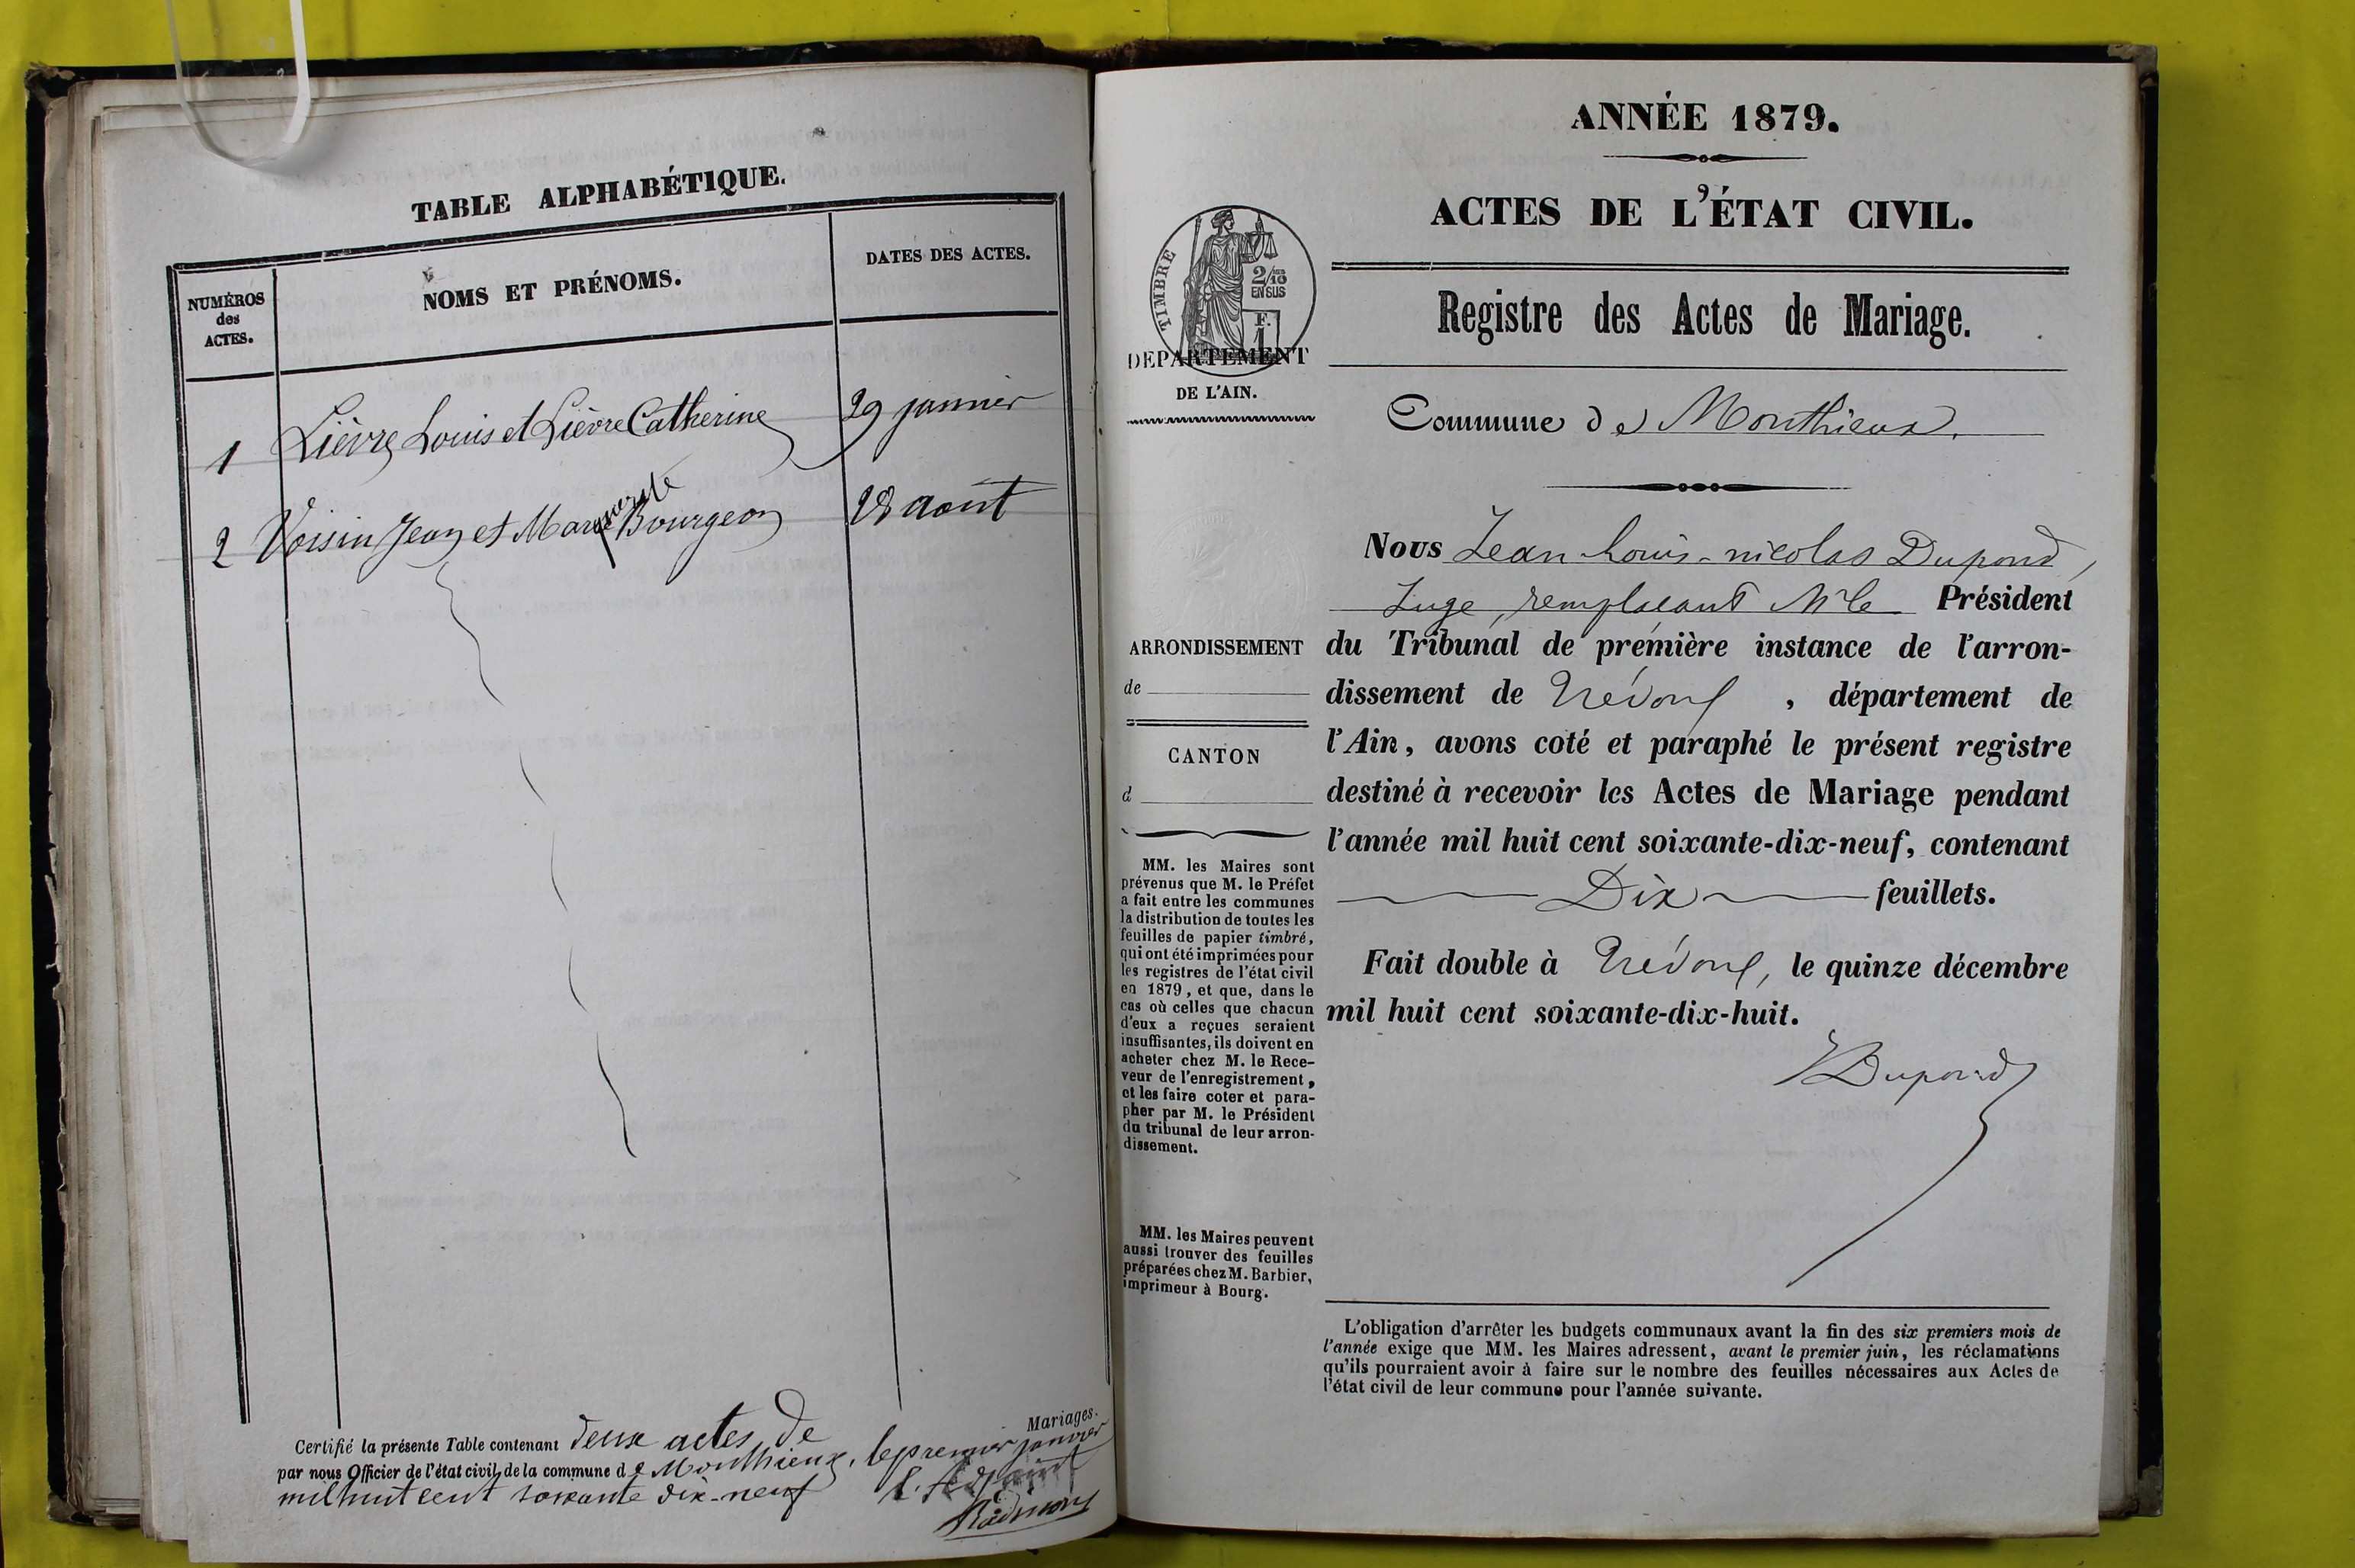 TABLE ALPHABÉTIQUE.
NUMÉROS
des
ACTES.
NOMS ET PRÉNOMS.
DATES DES ACTES.
1 Lièvre Louis et Lièvre Catherine 29 janvier
2 Voisin Jean et Marie Bourgeon 28 août
Certifié la présente Table contenant deux actes de Mariages.
par nous Officier de l'état civil de la commune de Monthieux, le premier janvier
mil huit cent soixante dix-neuf
l'Adjoint
ANNÉE 1879.
ACTES DE L'ÉTAT CIVIL.
Registre des Actes de Mariage.
TIMBRE
2/10
EN SUS
F.
1
DEPARTEMENT
DE L'AIN.
Commune de Monthieux.
Nous Jean Louis-nicolas Dupond,
Juge, remplacant Mr le Président
du Tribunal de première instance de l'arron-
dissement de Trévoux, département de
l'Ain, avons coté et paraphé le présent registre
destiné à recevoir les Actes de Mariage pendant
l'année mil huit cent soixante-dix-neuf, contenant
Dix feuillets.
Fait double à Trévoux, le quinze décembre
mil huit cent soixante-dix-huit.
Dupond
ARRONDISSEMENT
de
CANTON
d
MM. les Maires sont
prévenus que M. le Préfet
a fait entre les communes
la distribution de toutes les
feuilles de papier timbré,
qui ont été imprimées pour
les registres de l'état civil
en 1879, et que, dans le
cas où celles que chacun
d'eux a reçues seraient
insuffisantes, ils doivent en
acheter chez M. le Rece-
veur de l'enregistrement,
et les faire coter et para-
pher par M. le Président
du tribunal de leur arron-
dissement.
MM. les Maires peuvent
aussi trouver des feuilles
préparées chez M. Barbier,
imprimeur à Bourg.
L'obligation d'arrêter les budgets communaux avant la fin des six premiers mois de
l'année exige que MM. les Maires adressent, avant le premier juin, les réclamations
qu'ils pourraient avoir à faire sur le nombre des feuilles nécessaires aux Actes de
l'état civil de leur commune pour l'année suivante.